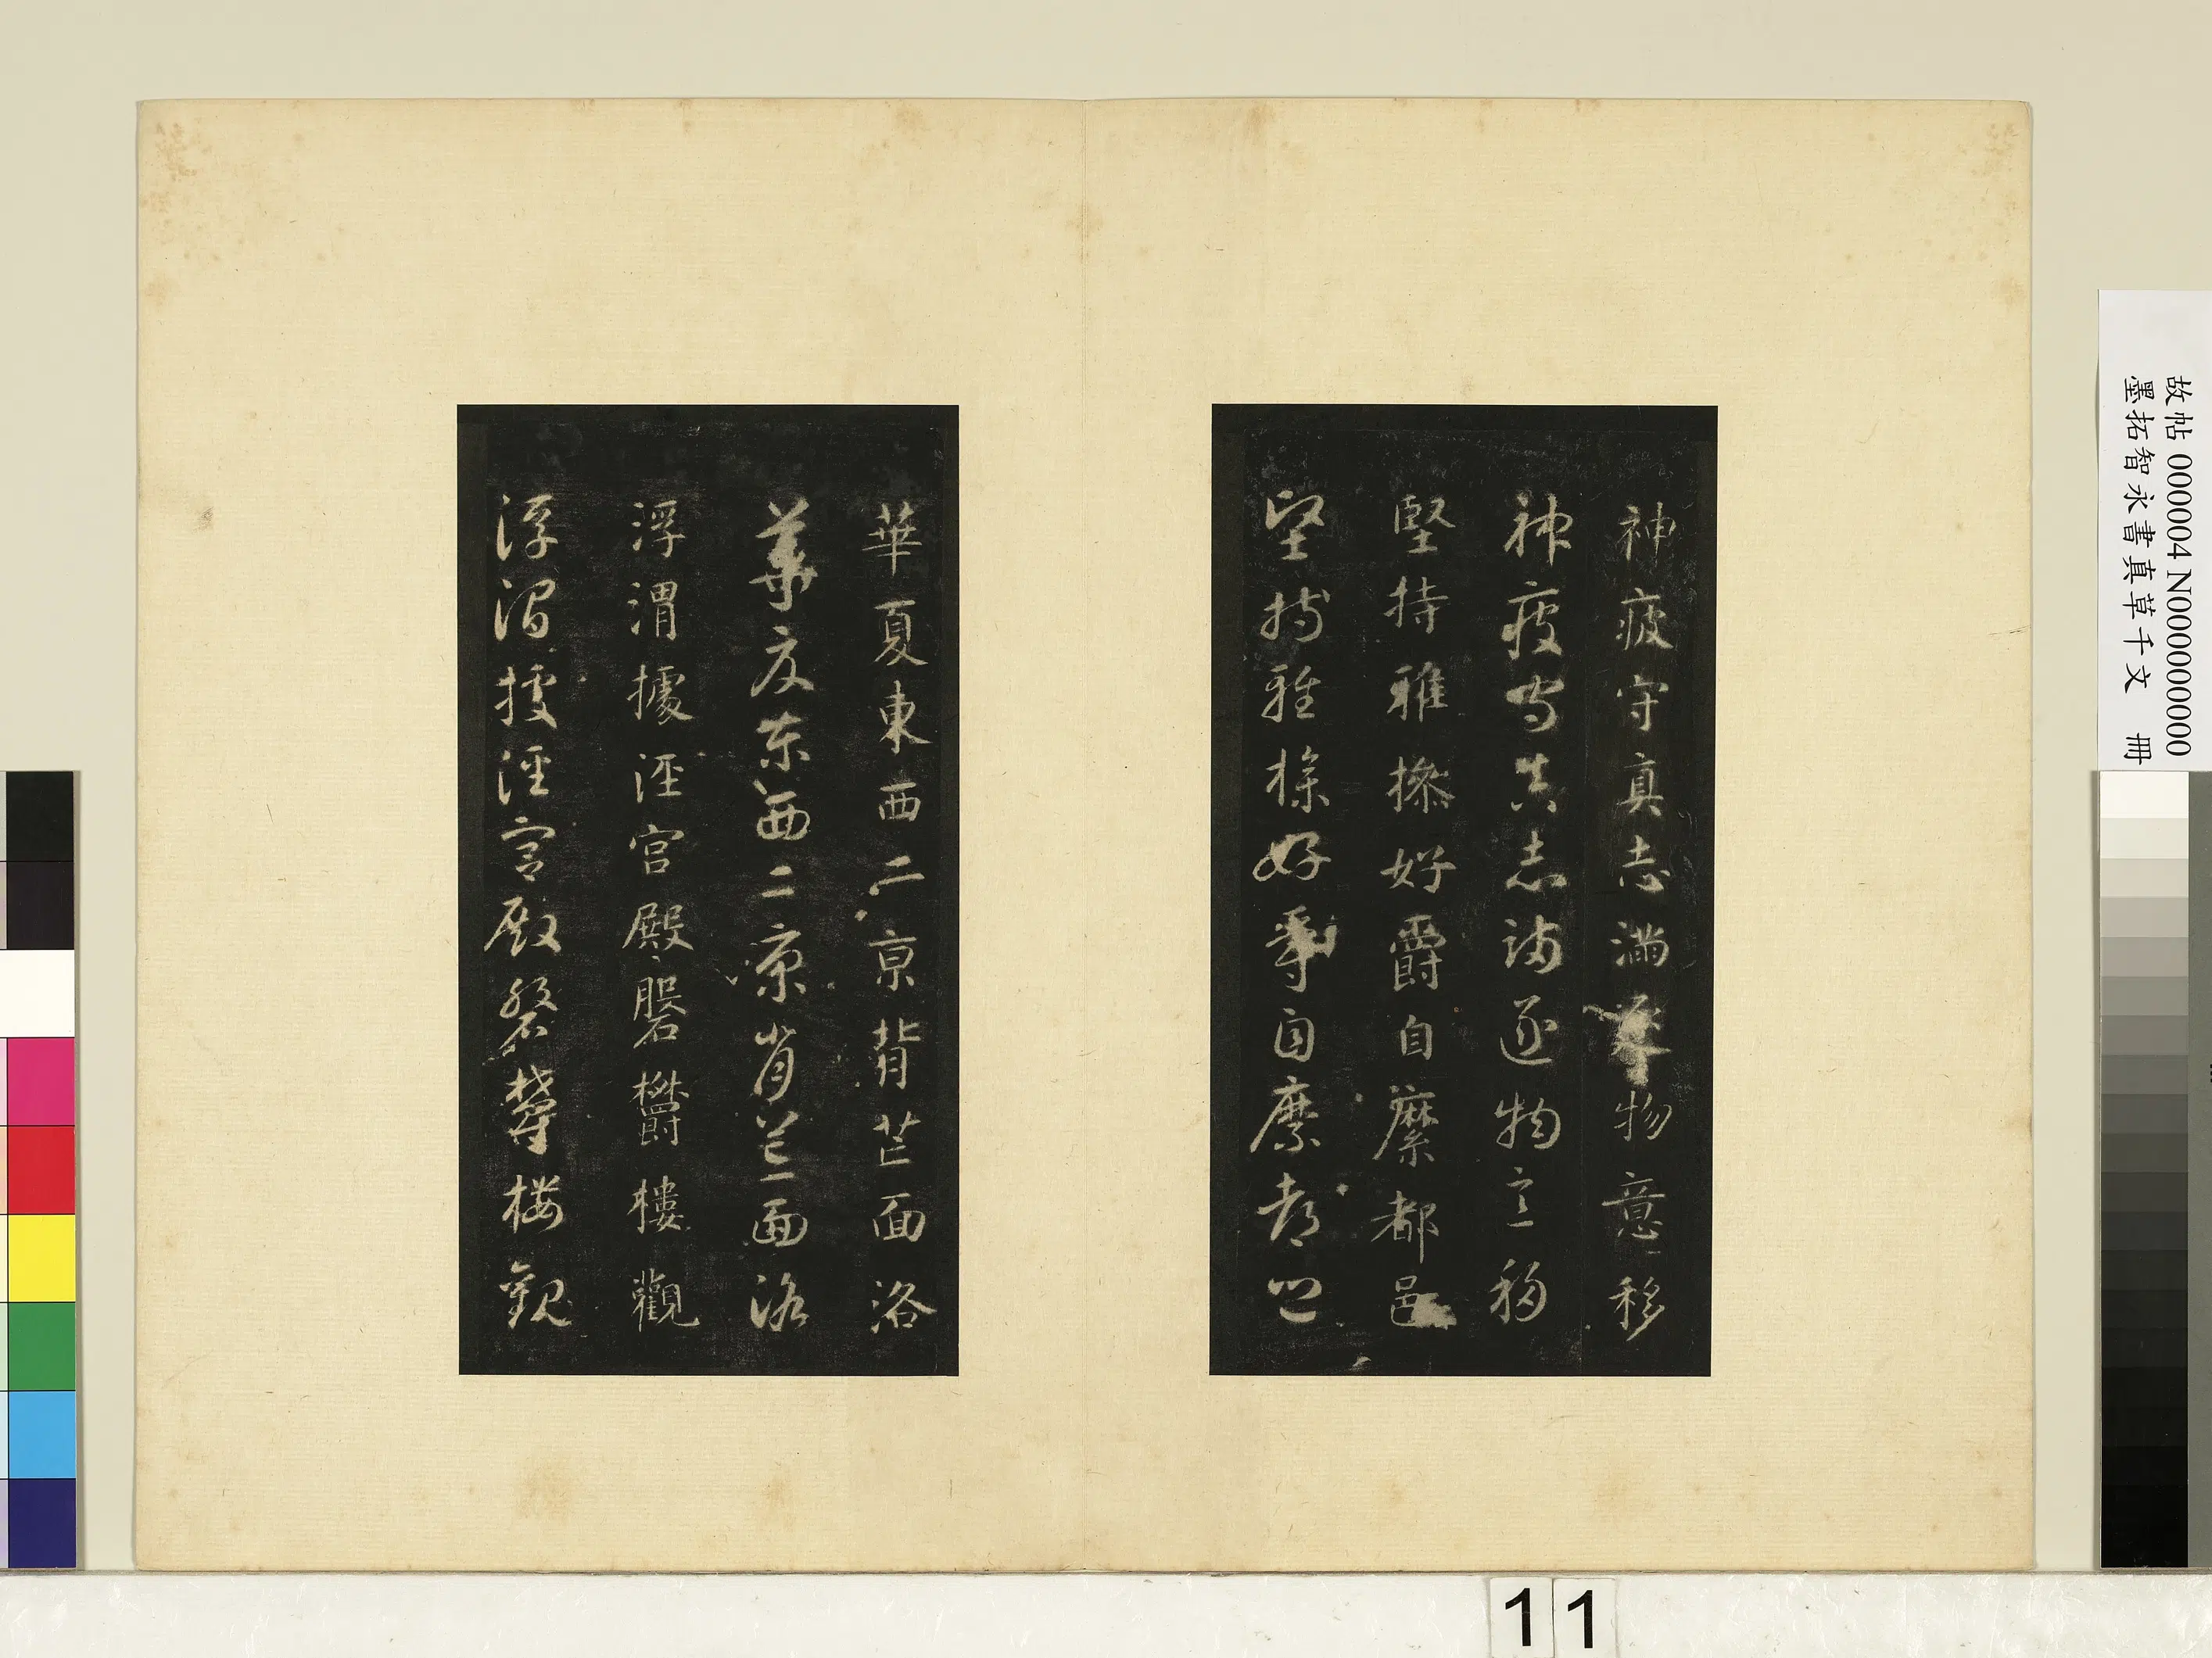 神疲守真志滿逐物意移
神疲守真志滿逐物意移
堅持雅操好爵自縻都邑
堅持雅操好爵自縻都邑
華夏東西二京背芒面洛
華夏東西二京背芒面洛
浮渭據涇宮殿磐欝樓觀
浮渭據涇宮殿磐欝樓觀
故帖 000004 N000000000
墨拓智永書真草千文 冊
11